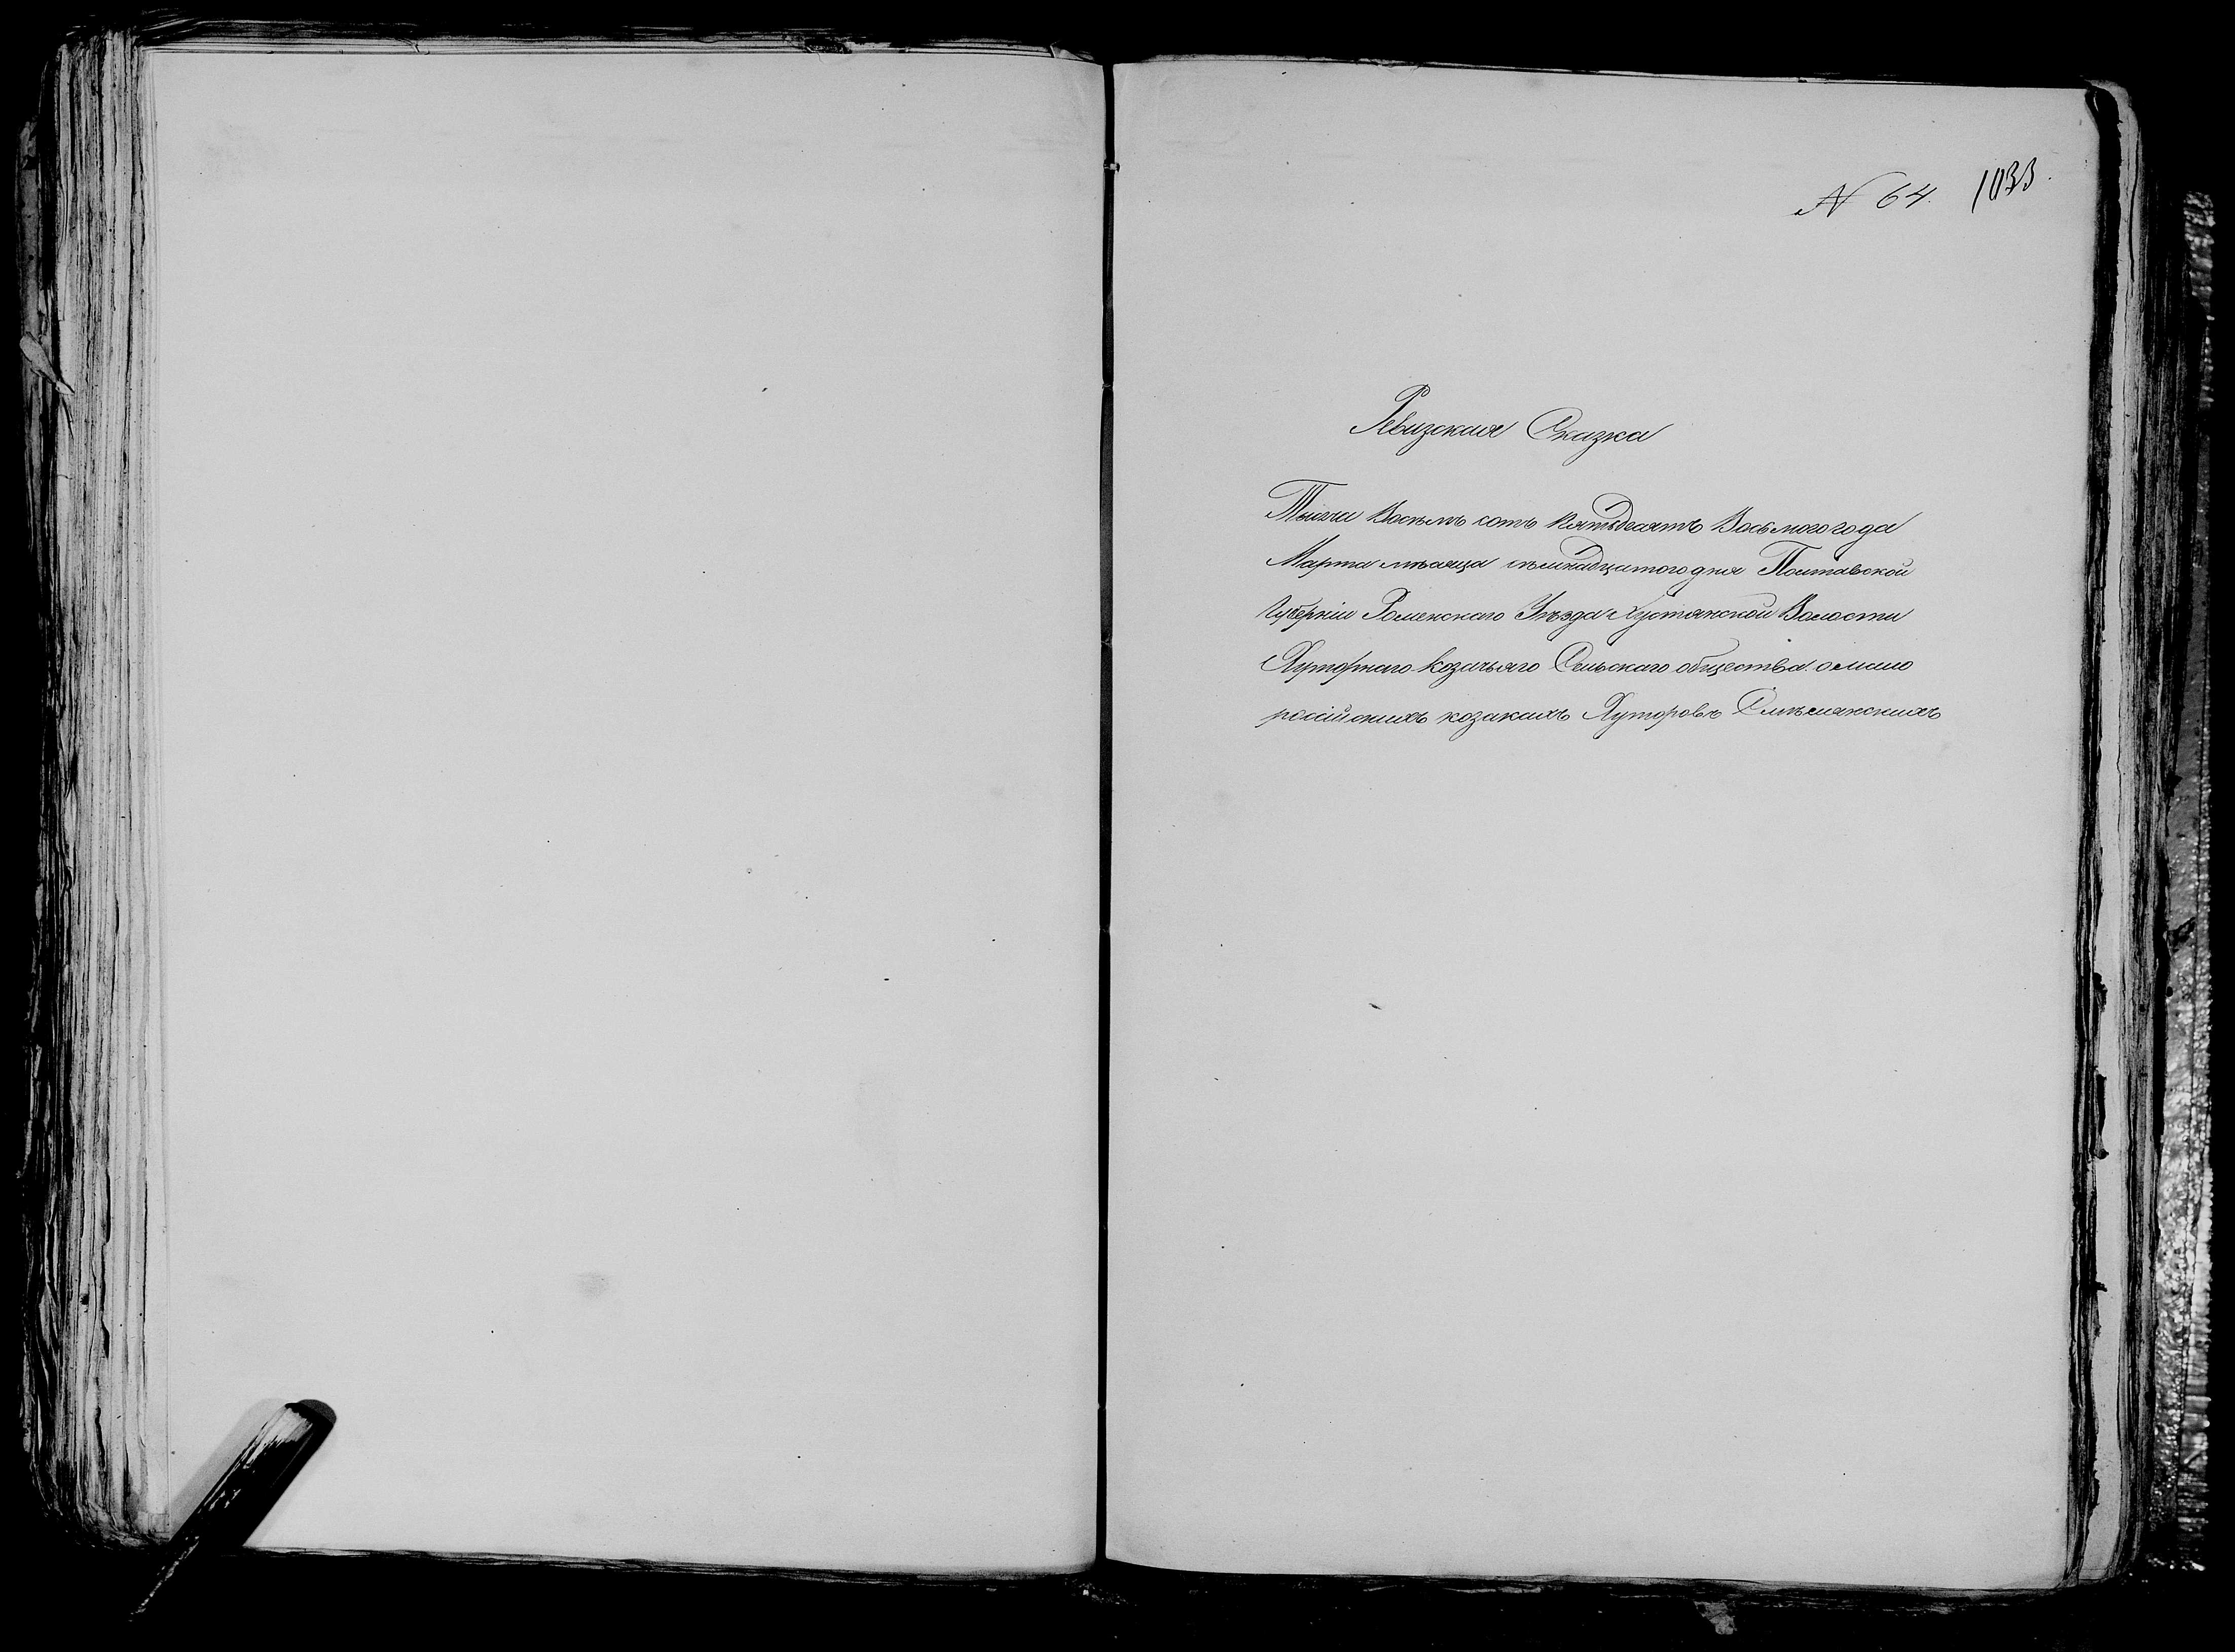 N 64. 1033.
Ревизская Сказка
Тысяча Восемь сотъ Пятьдесятъ Восьмого года
Марта мѣсяца семнадцатого дня Полтавской
Губерніи Роменскаго Уѣзда Хустянской Волости
Хуторнаго Козачьяго Сельскаго общества о мало
россійскихъ козакахъ Хуторовъ